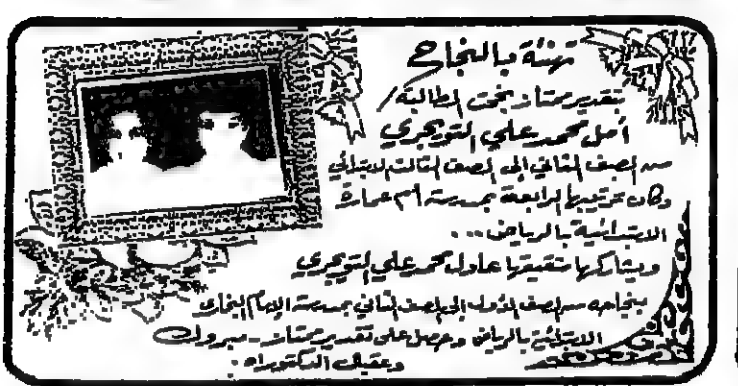 تهنئة بالنجاح
بتقدير ممتاز نجحت الطالبة/
أمل محمد علي التويجري
من الصف الثاني إلى الصف الثالث الابتدائي
وكان ترتيبها الرابعة بمدرسة أم عمارة
الابتدائية بالرياض...
ويشاركها شقيقها عادل محمد علي التويجري
بنجاحه من الصف الأول إلى الصف الثاني بمدرسة الإمام البخاري
الابتدائية بالرياض وحصل على تقدير ممتاز - مبروك
وعقبال الدكتوراه.